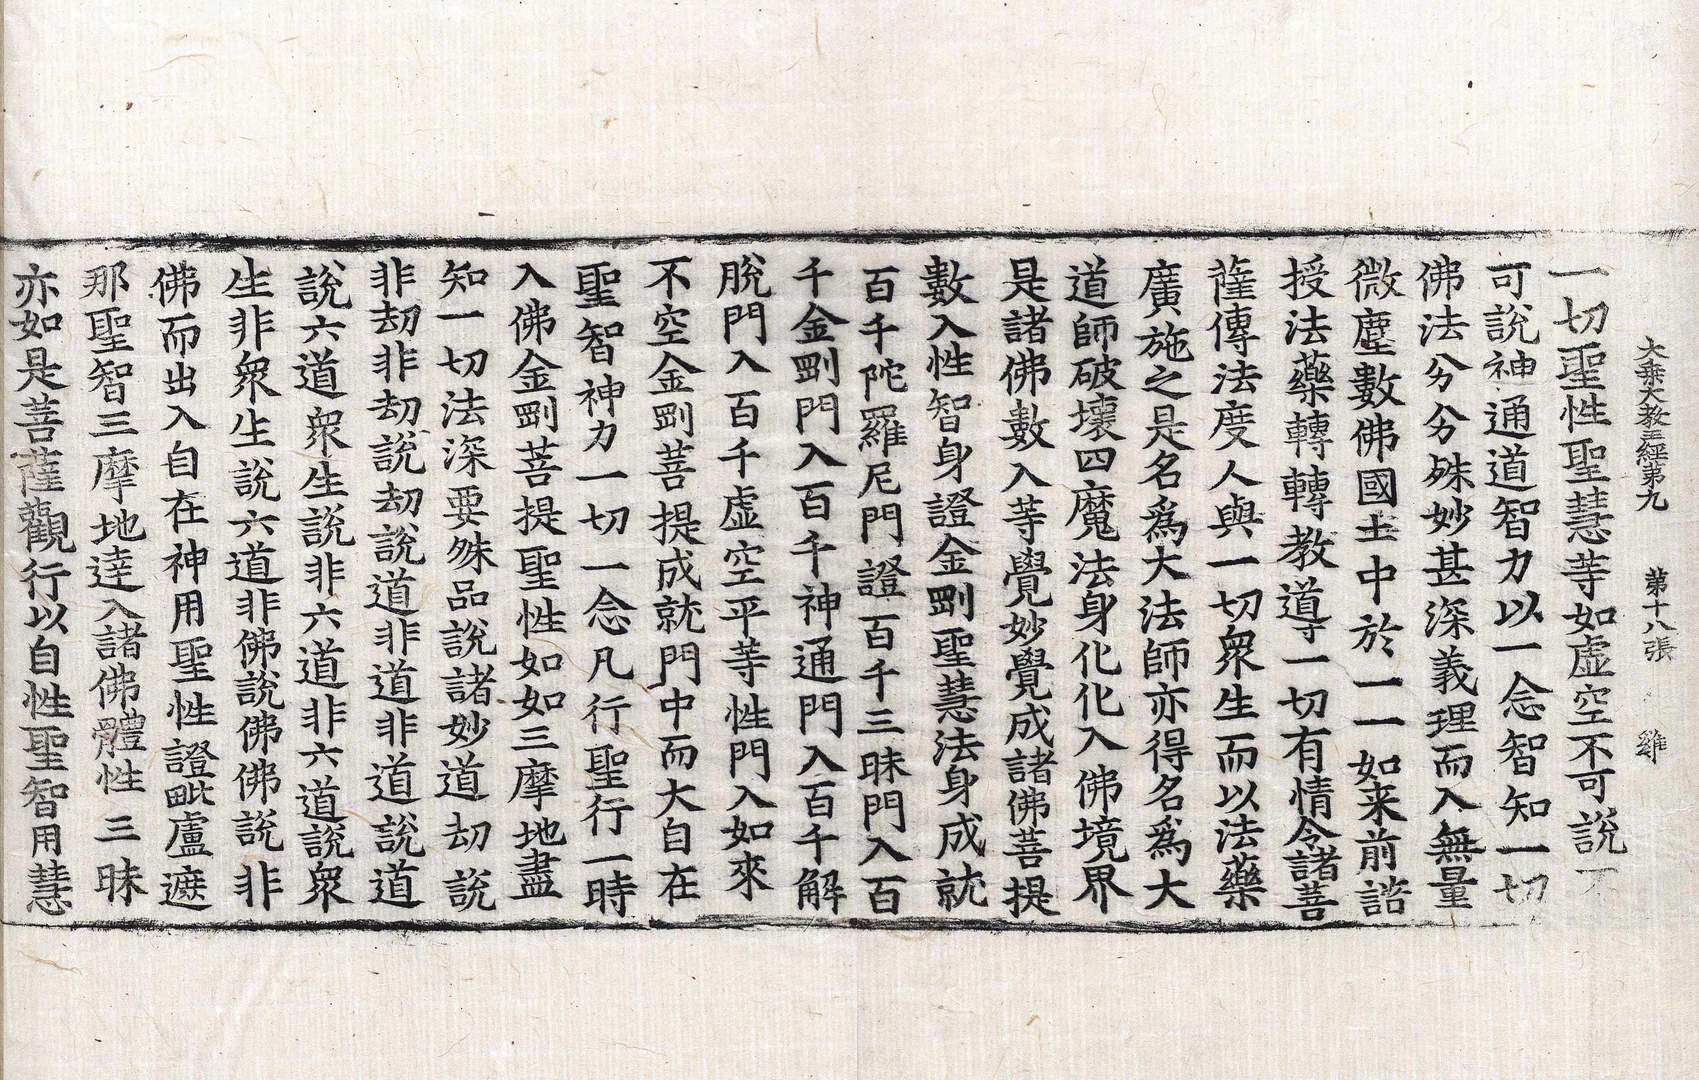 大乘大教王經第九　第十八張　雞
一切聖性聖慧等如虛空不可說不
可說神通道智力以一念智知一切
佛法分分殊妙甚深義理而入無量
微塵數佛國土中於一一如来前諮
授法藥轉轉教導一切有情令諸菩
薩傳法度人與一切衆生而以法藥
廣施之是名爲大法師亦得名爲大
道師破壞四魔法身化化入佛境界
是諸佛數入等覺妙覺成諸佛菩提
數入性智身證金剛聖慧法身成就
百千陀羅尼門證百千三昧門入百
千金剛門入百千神通門入百千解
脫門入百千虛空平等性門入如來
不空金剛菩提成就門中而大自在
聖智神力一切一念凡行聖行一時
入佛金剛菩提聖性如如三摩地盡
知一切法深要殊品說諸妙道劫說
非劫非劫說劫說道非道非道說道
說六道衆生說非六道非六道說衆
生非衆生說六道非佛說佛佛說非
佛而出入自在神用聖性證毗盧遮
那聖智三摩地達入諸佛體性三昧
亦如是菩薩觀行以自性聖智用慧